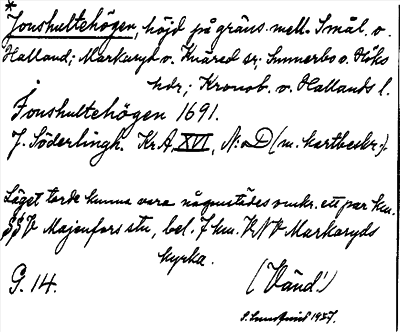 * Jonshultehögen, höjd på gräns mell. Smål. o.
Halland; Markaryd o. Knäred sr; Sunnerbo o. Höks
hdr; Kronob. o. Hallands l.
Jonshultehögen 1691.
J. Söderlingh. Kr.A. XVI, N:o D (m. kartbeskr.).
Läget torde kunna vara någonstädes omkr. ett par km.
Majenfors stn, bel. 7 km. VNV Markaryds
kyrka.
G. 14.
(Vänd!)
S. Lundqvist 1927.